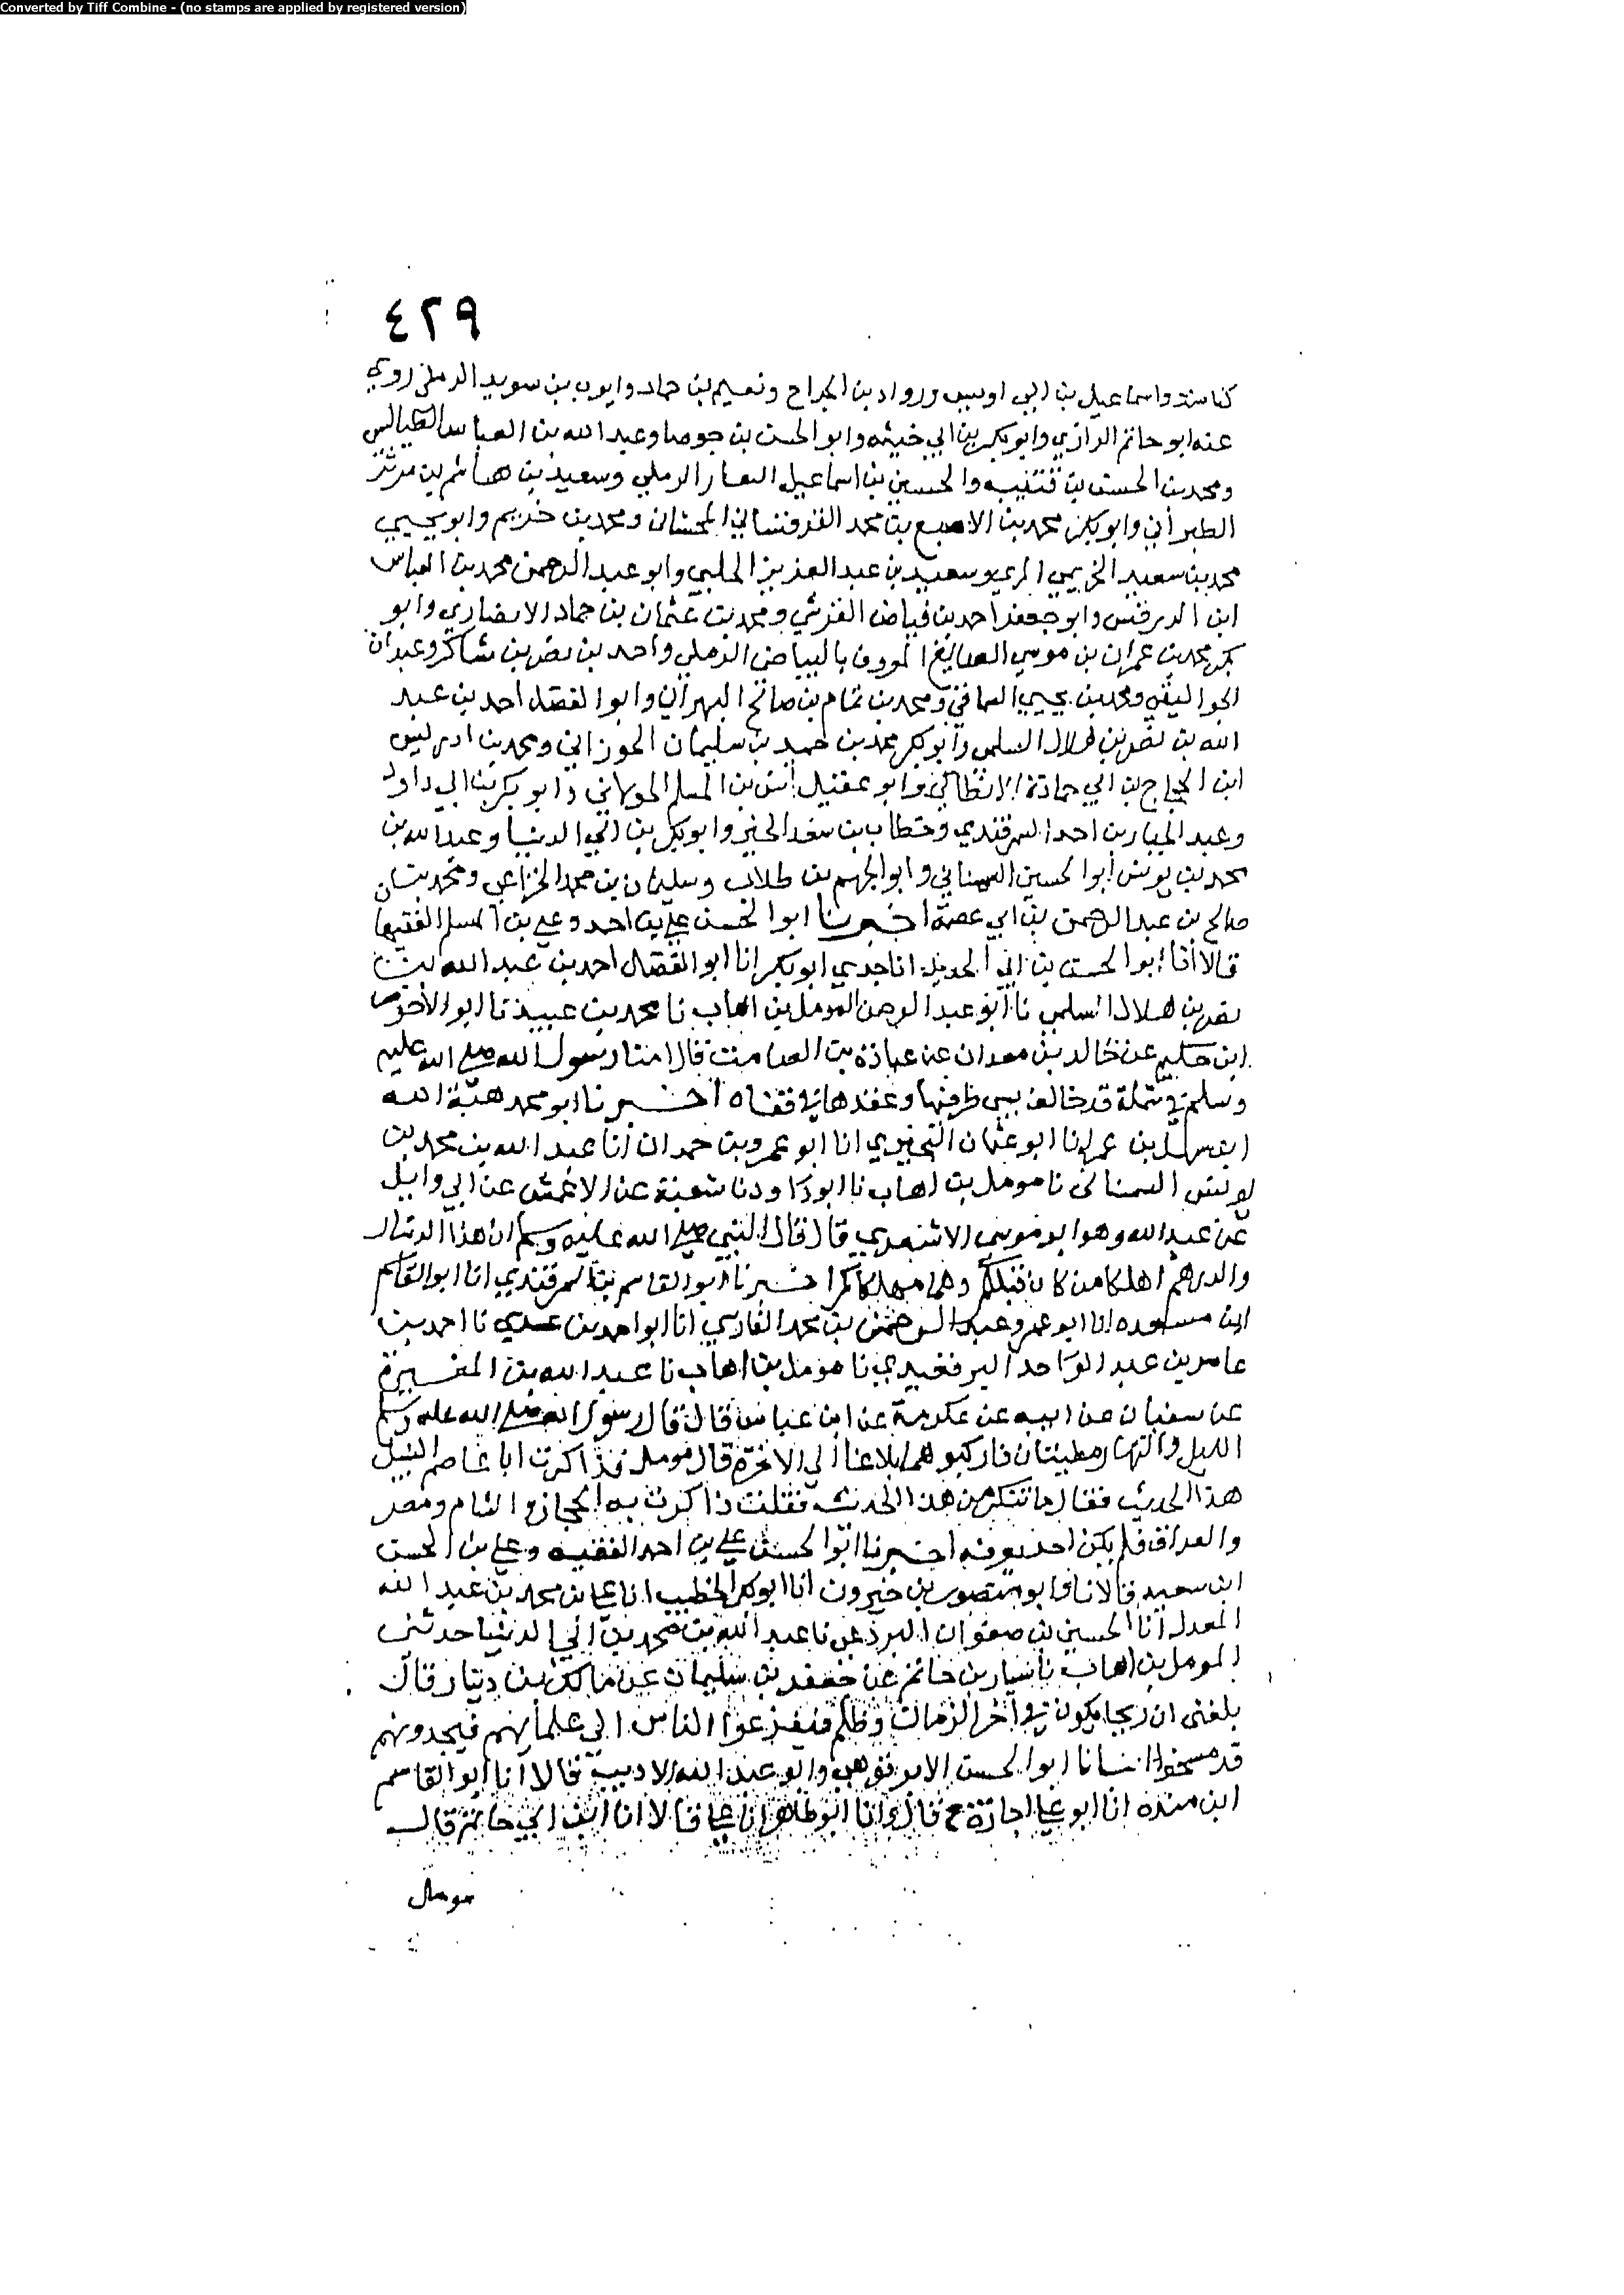 Converted by Tiff Combine - (no stamps are applied by registered version)
٤٢٩
كناسة واسماعيل بن ابي اويس ورواد بن الجراح ونعيم بن حماد وايوب بن سويد الرملي روي
عنه ابو حاتم الرازي وابو بكر بن ابي خيثمه وابو الحسن بن جوصا وعبد الله بن العباس الطيالسي
ومحمد بن الحسن بن قتيبه والحسين بن اسماعيل الرملي وسعيد بن هاشم بن مرثد
الطبراني وابو بكر محمد بن الاصبغ بن محمد القرقساني ومحمد بن خريم وابو يحيي
محمد بن سعيد الخريمي وسعيد بن عبد العزيز الحلبي وابو عبد الرحمن محمد بن العباس
ابن الدرفس وابو جعفر احمد بن فياض القرشي ومحمد بن عثمان بن حماد الانصاري وابو
بكر محمد بن عمران بن موسي الصايغ بالبياض الرملي واحمد بن نصر بن شاكر وعبدان
الجواليقي ومحمد بن يحيي ومحمد بن تمام بن صالح البهراني وابو الفضل احمد بن عبد
الله بن نصر بن هلال السلمي وابو بكر محمد بن حميد بن سليمان الحوراني ومحمد بن ادريس
ابن الحجاج بن ابي حمادة الانطاكي وابو عقيل انس بن المسلم الخولاني وابو بكر بن ابي داود
وعبد الجبار بن احمد السمرقندي وخطاب بن سعد الخير وابو بكر بن ابي الدنيا وعبد الله بن
محمد بن يونس ابو الحسين السمناني وابو الجهم بن طلاب وسليمان بن محمد الخزاعي ومحمد بن
صالح بن عبد الرحمن بن ابي عصمة اخبرنا ابو الحسن علي بن احمد وعلي بن المسلم الفقيها
قالا انا ابو الحسن بن ابي الحديد انا جدي ابو بكر انا ابو الفضل احمد بن عبد الله بن
نصر بن هلال السلمي نا ابو عبد الرحمن المومل بن اهاب نا محمد بن عبيد نا ابو الاحوص
ابن حكيم عن خالد بن معدان عن عبادة بن الصامت قال امنا رسول الله صلى الله عليه
وسلم في شملة قد خالف بين طرفيها وعقدها في قفاه اخبرنا ابو محمد هبة الله
ابن سهل بن عمر انا ابو عثمان البحيري انا ابو عمرو بن حمدان انا عبد الله بن محمد بن
يونس السمناني نا مومل بن اهاب نا ابو داود نا شعبة عن الاعمش عن ابي وايل
عن عبد الله وهو ابو موسي الاشعري قال قال النبي صلى الله عليه وسلم ان هذا الدينار
والدرهم اهلكا من كان قبلكم وهما مهلكاكم اخبرنا ابو القاسم بن السمرقندي انا ابو القاسم
ابن مسعده انا ابو عمرو عبد الرحمن بن محمد الفارسي انا ابو احمد بن عدي نا احمد بن
عامر بن عبد الواحد البرقعيدي نا مومل بن اهاب نا عبد الله بن المغيرة
عن سفيان عن ابيه عن عكرمة عن ابن عباس قال قال رسول الله صلى الله عليه وسلم
الليل والنهار مطيتان فاركبوهما بلاغا الي الاخرة قال مومل فذاكرت ابا عاصم النبيل
هذا الحديث فقال ما تنكر من هذا الحديث فقلت ذاكرت به الحجاز والشام ومصر
والعراق فلم يكن احد يعرفه اخبرنا ابو الحسن علي بن احمد الفقيه وعلي بن الحسن
ابن سعيد قالا نا وابو منصور بن خيرون انا ابو بكر الخطيب انا علي بن محمد بن عبد الله
المعدل انا الحسين بن صفوان البرذعي نا عبد الله بن محمد بن ابي الدنيا حدثني
المومل بن اهاب نا سيار بن حاتم عن جعفر بن سليمان عن مالك بن دينار قال
بلغني ان ريحا يكون في آخر الزمان وظلم فيفزعوا الناس الي علمائهم فيجدونهم
قد مسخوا انبانا ابو الحسن وابو عبد الله الاديب قالا انا ابو القاسم
ابن منده انا ابو علي اجازة ح قال وانا ابو طاهر انا علي قالا انا ابن ابي حاتم قال
مومل